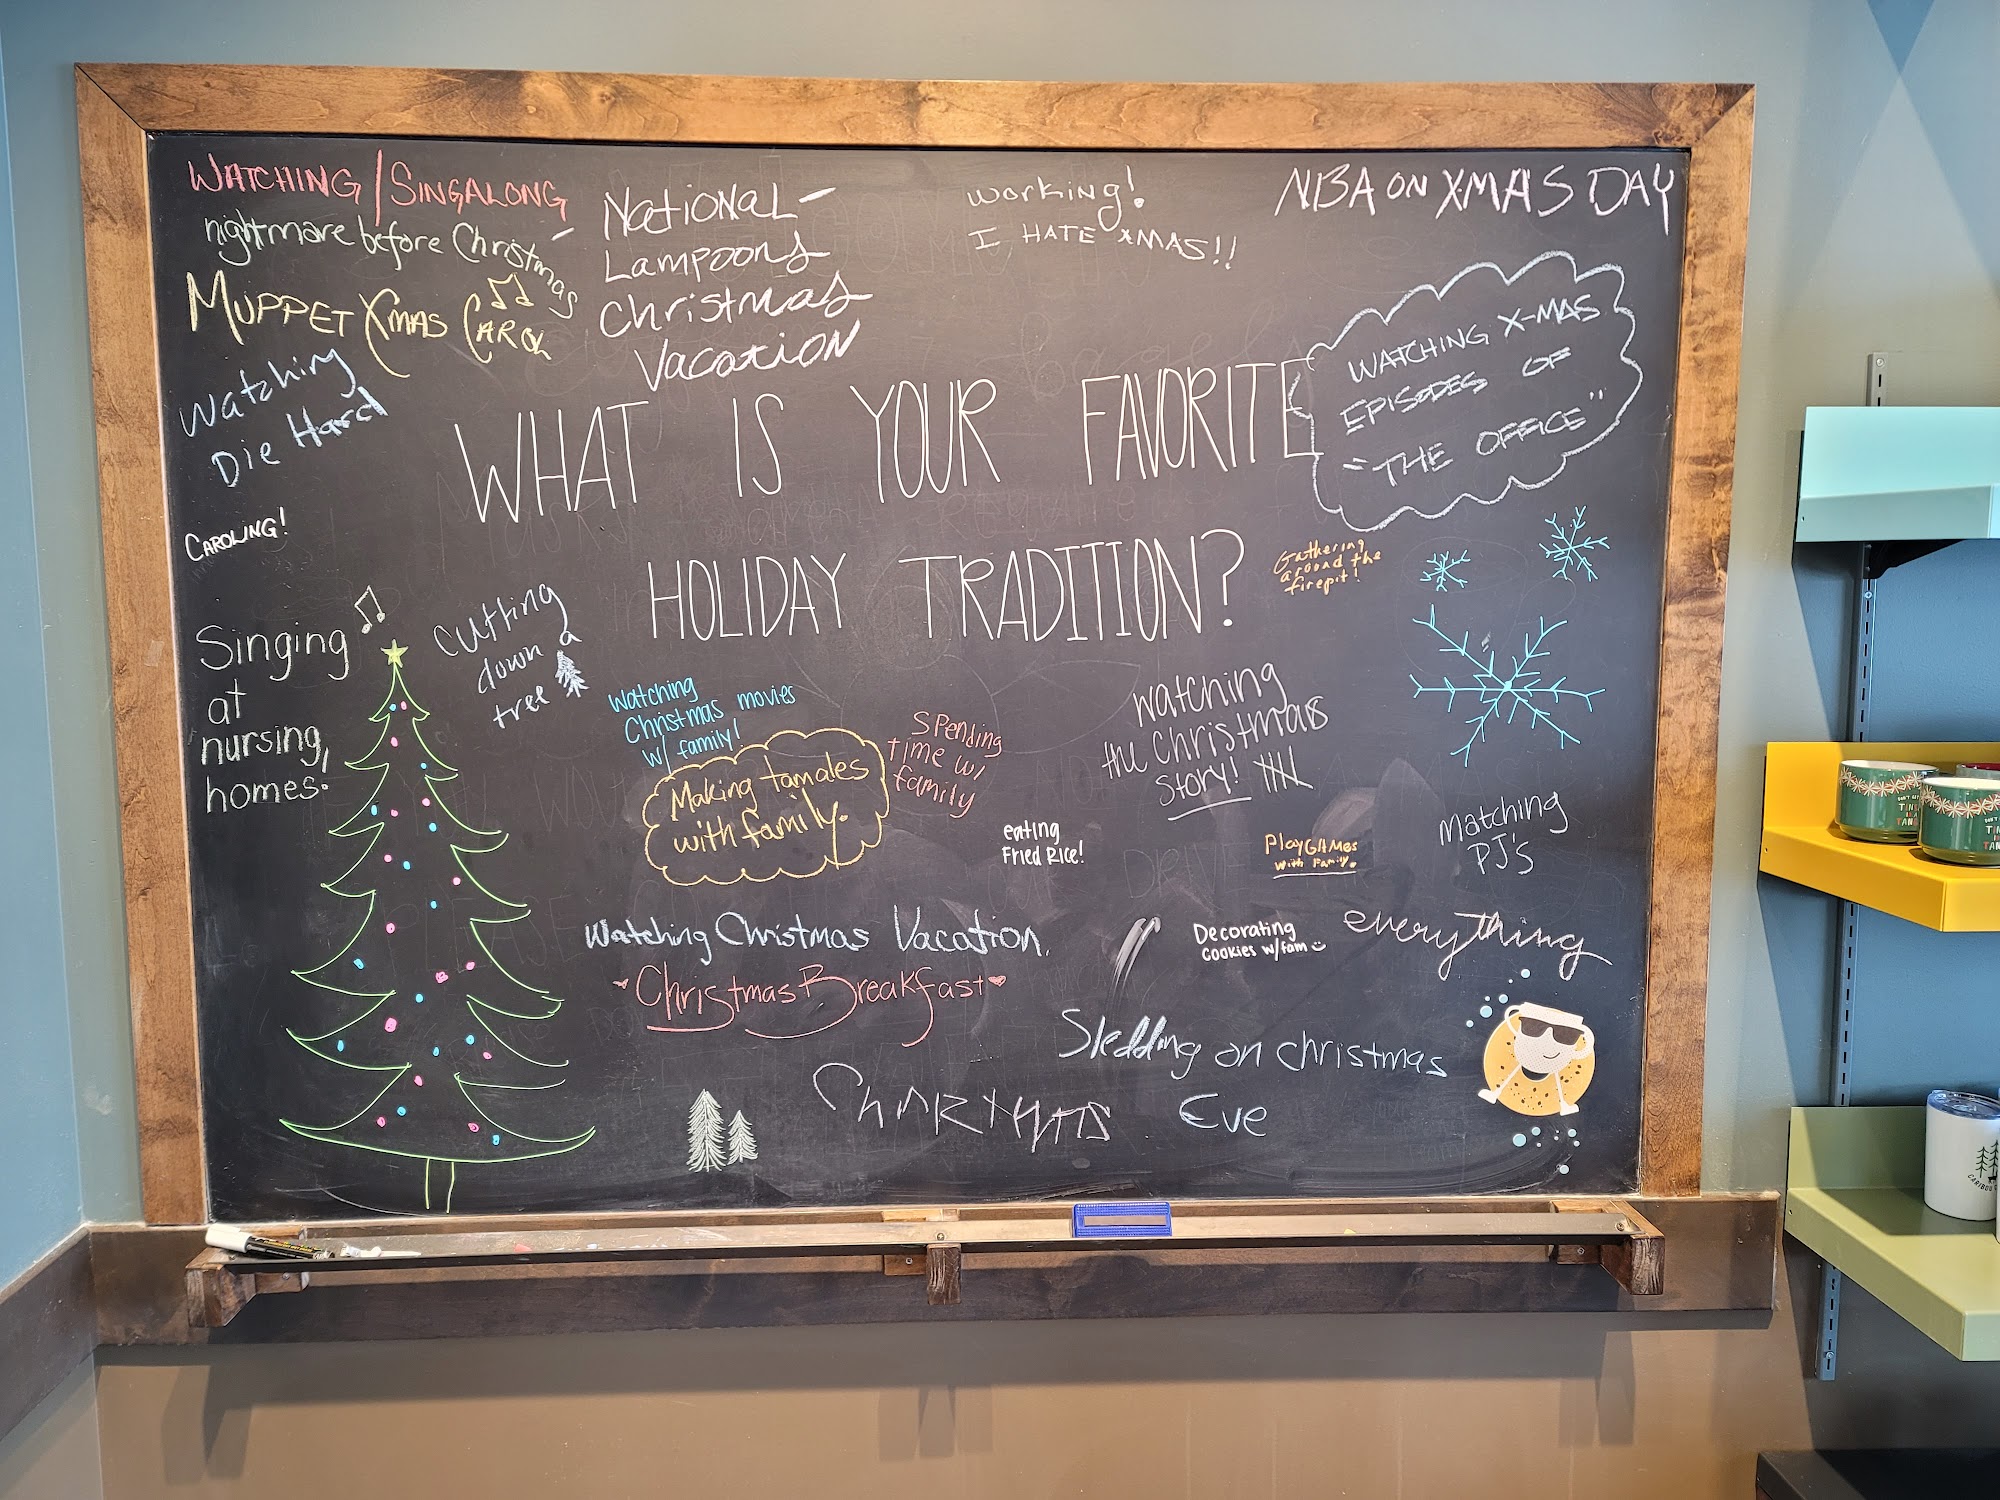 WATCHING/SINGALONG
nightmare before Christmas
MUPPET XMAS CAROL
NATIONAL
LAMPOONS
Christmas
VacatioN
working!
I HATE XMAS!!
NBA ON XMAS DAY
Watching
Die Hard
WATCHING X-MAS
EPISODES OF
"THE OFFICE"
WHAT IS YOUR FAVORITE
HOLIDAY TRADITION?
CAROLING!
Gathering
around the
firepit!
Singing
at
nursing
homes.
cutting
down a
tree
Watching
Christmas movies
w/ family!
Making tamales
with family.
Spending
time w/
family
Watching
the Christmas
Story!
eating
Fried Rice!
PlAY GAMes
with Family.
Matching
PJ'S
Watching Christmas Vacation.
Christmas Breakfast
Decorating
Cookies w/fam
everything
Sledding on christmas
Eve
DON'T GET
TIN
TAN
DON'T GET
TIN
IN A
TAN
CARIBOU